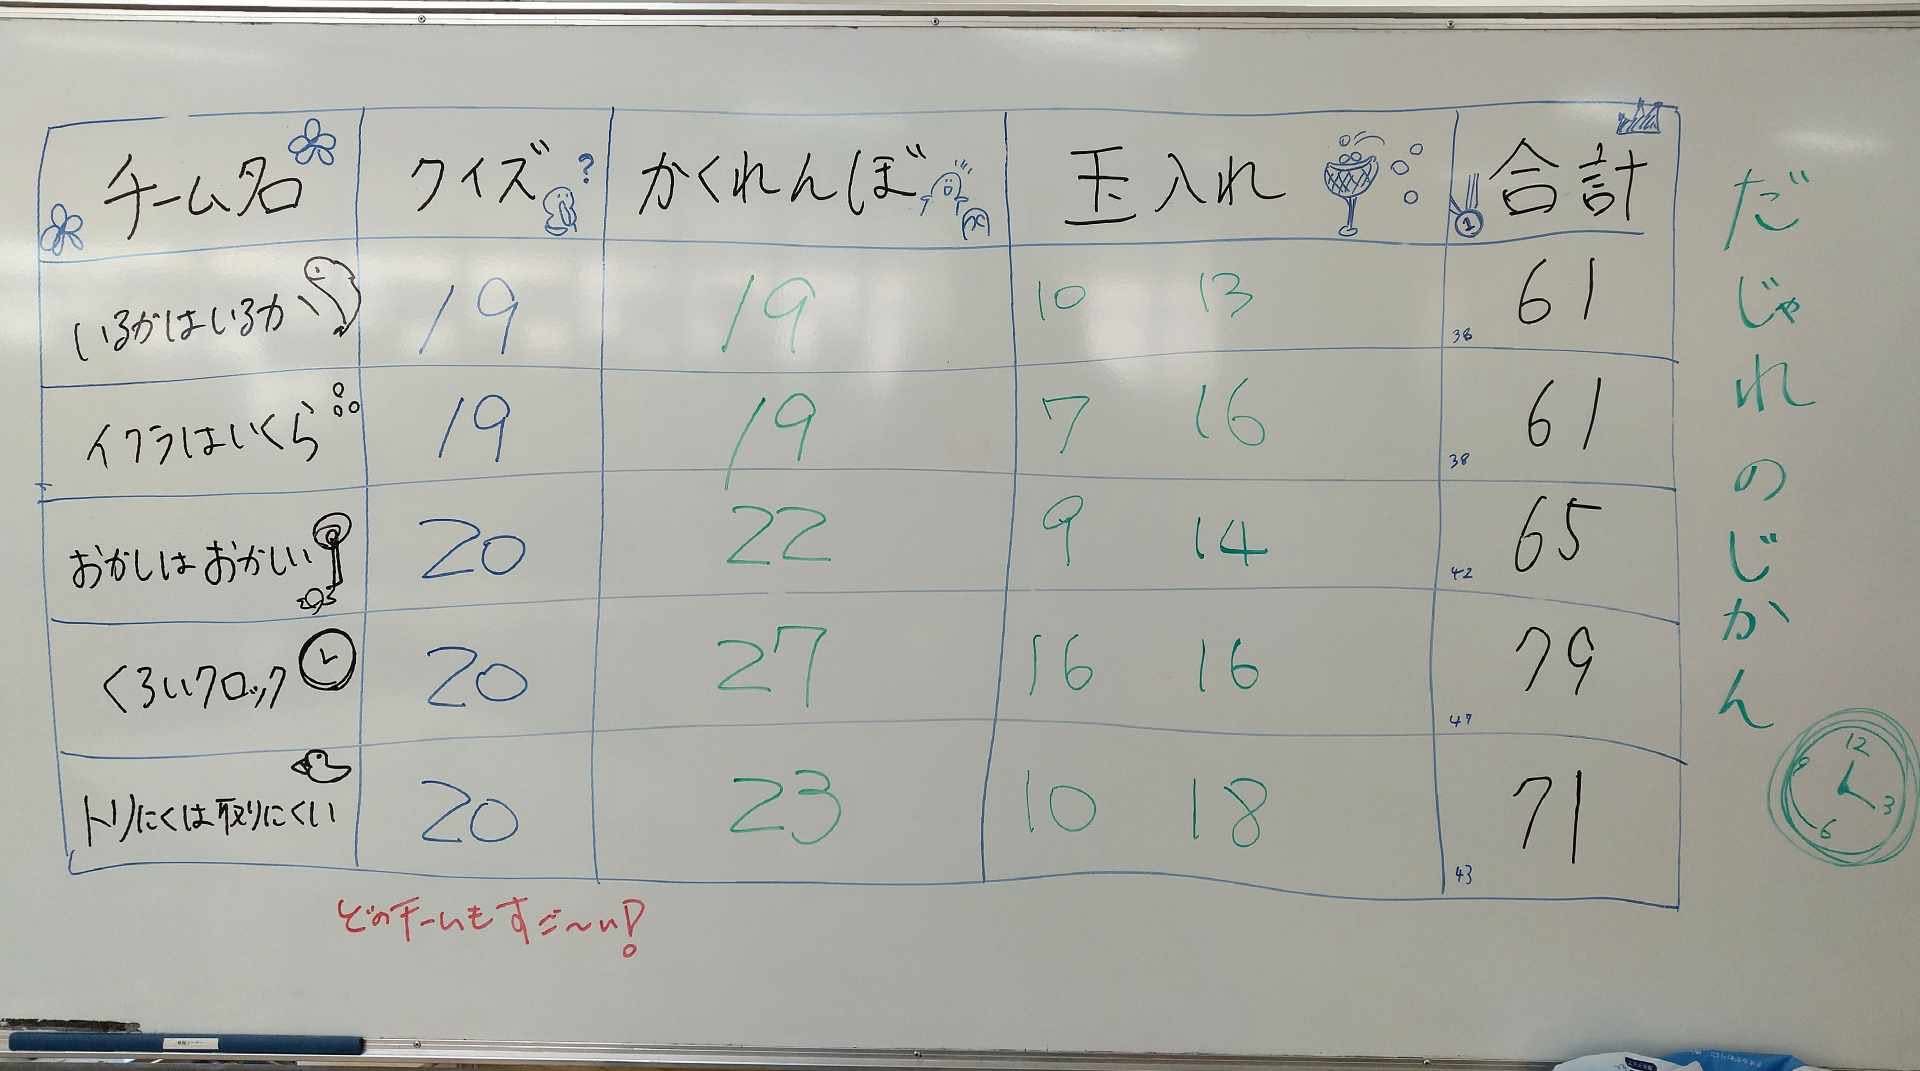 チーム名 クイズ ? かくれんぼ 玉入れ 1 合計
いるかはいるか 19 19 10 13 38 61
イクラはいくら 19 19 7 16 38 61
おかしはおかしい 20 22 9 14 42 65
くろいクロック 20 27 16 16 47 79
トリにくは取りにくい 20 23 10 18 43 71
どのチームもすご〜い!
だじゃれのじかん
12
9 3
6